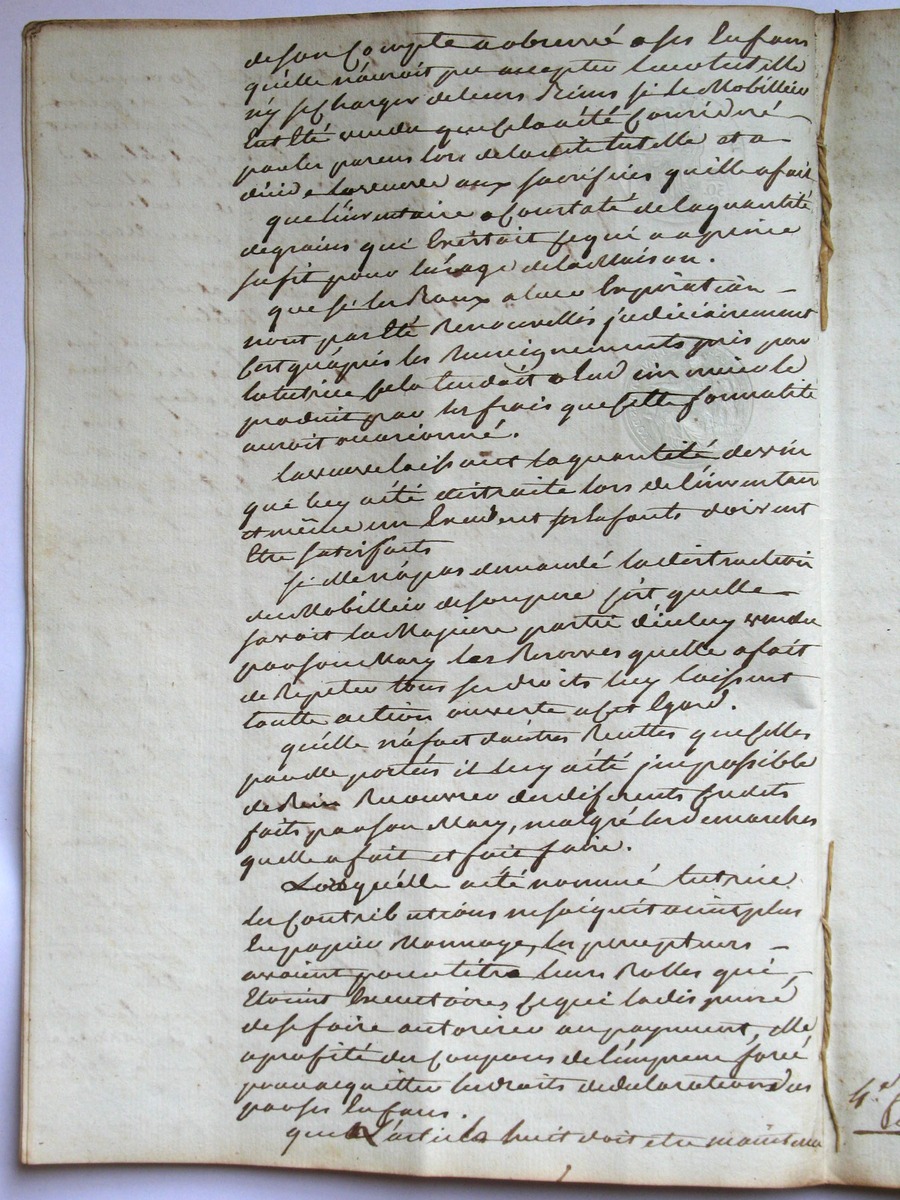 de son Compte a observé a ses Enfans
qu'elle n'auroit pu accepter leur tutelle
n'y se charger de leurs Biens si le Mobillier
Eut Eté vendu que cela a été Consideré
par les parens lors de la dite tutelle et a
du aux sacrifices qu'elle a fait
que l'inventaire a Constaté de la quantité
de grains qui Existoit ce qui a a peine
sufit pour l'usage de la Maison.
que si les Baux a leur Expiration
n'ont pas Eté Renouvellés judiciairement
C'est qu'aprés les Renseignements pris par
la tutrice cela tendoit a
produit par les frais que cette formalité
auroit occasionné.
la veuve laissant la quantité de vin
qui luy a été distraite lors de l'inventaire
et même un Excedent ses Enfants doivent
Etre satisfaits
si elle n'a pas demandé la distraction
du Mobillier de son pere c'est qu'elle
savoit la Majeure partie d'iceluy vendu
par son Mary les Reserves qu'elle a fait
de Repeter tous ses droits luy laissent
toutte action ouverte a cet Egard.
qu'elle n'a fait d'autres Recettes que celles
par elle portées il luy a été jmpossible
de Rien Recouvrer des diferents Credits
faits par son Mary, malgré les demarches
quelle a fait et fait faire.
Lorsqu'elle a été nommé tutrice
les Contributions ne s'aiquitoient plus
En papier Monnoye, les percepteurs
avoient pour titre leurs Rolles qui
Etoient Executoires ce qui la dispensé
de se faire autoriser au payement, elle
a profité des Coupons de l'Emprunt forcé
pour acquitter les droits de declaration dus
par ses Enfans.
que L'article huit doit etre maintenu